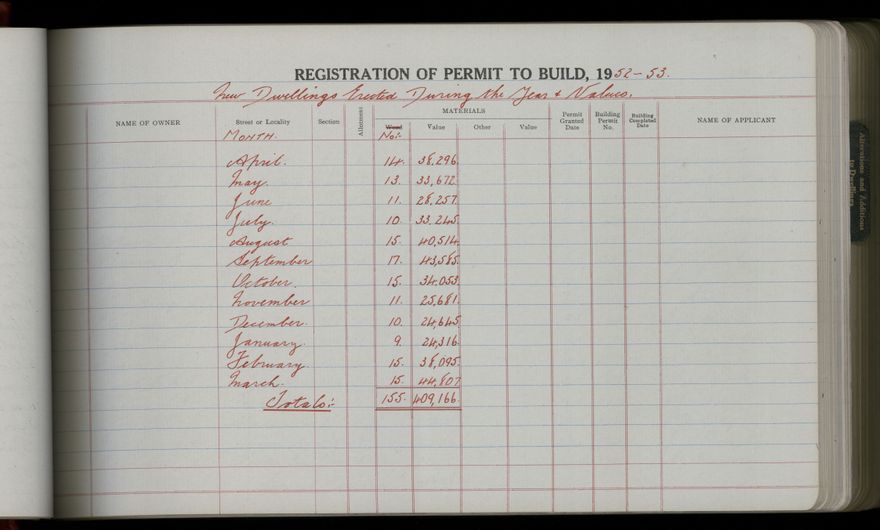 REGISTRATION OF PERMIT TO BUILD, 1952-53.
New Dwellings Erected During the Year & Values.
NAME OF OWNER Street or Locality Section Allotment MATERIALS Permit Granted Date Building Permit No. Building Completed Date NAME OF APPLICANT
Wood Value Other Value
MONTH. No:-
April. 14. 38,296.
May. 13. 33,672.
June 11. 28,257.
July. 10. 33,245.
August 15. 40,514.
September 17. 43,585.
October. 15. 34,053.
November 11. 25,681.
December. 10. 24,645.
January. 9. 24,316.
February. 15. 38,095.
March. 15. 44,807
Totals:- 155. 409,166.
Alterations and Additions
to Dwellings